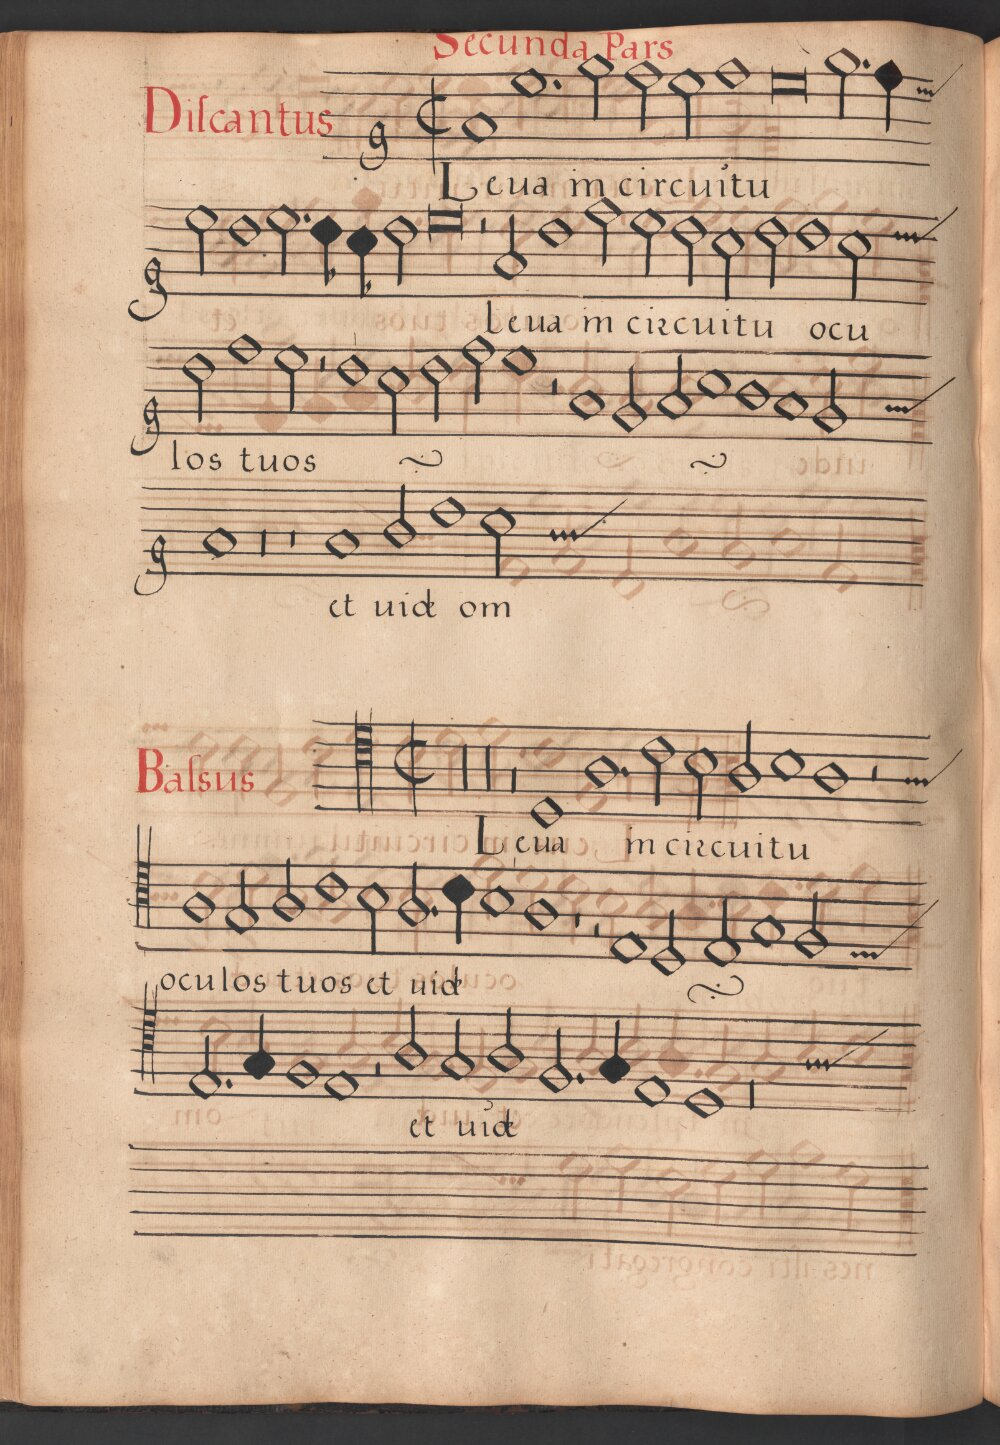 Secunda Pars
Diſcantus
Leua in circuitu
Leua in circuitu ocu
los tuos
et uide om
Baſsus
Leua in circuitu
oculos tuos et uide
et uide